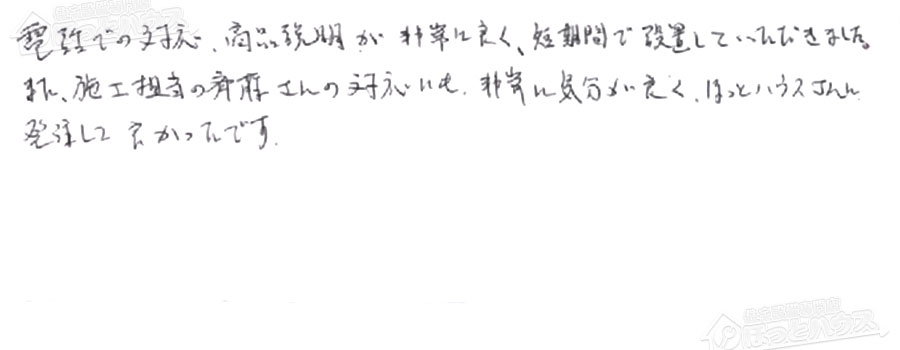 電話での対応、商品説明が非常に良く、短期間で設置していただきました。
また、施工担当の斉藤さんの対応にも、非常に気分が良く、ほっとハウスさんに
発注して良かったです。
ほっとハウス